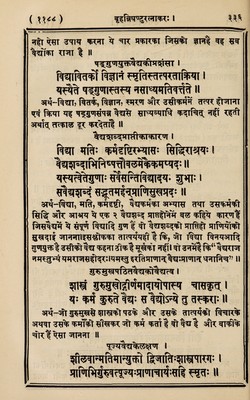 ( ११८८ ) बृहन्निघण्टुरत्नाकरः । ३३९
नहो ऐसा उपाय करना ये चार प्रकारका जिसको ज्ञानहै वह सब
वैद्योंका राजा है ॥
षड्गुणयुक्तवैद्यकीप्रशंसा ।
विद्यावितर्को विज्ञानं स्मृतिस्तत्परताक्रिया ।
यस्यैते षड्गुणास्तस्य नसाध्यमतिवर्त्तते ॥
अर्थ-विद्या, वितर्क, विज्ञान, स्मरण और उसीकर्ममें तत्पर होजाना
एवं क्रिया यह षड्गुणसंपन्न वैद्यसे साध्यव्याधि कदाचित् नहीं रहती
अर्थात् तत्काल दूर करदेताहै ॥
वैद्यशब्दप्राप्तीकाकारण
विद्या मतिः कर्मदृष्टिरभ्यासः सिद्धिराश्रयः ।
वैद्यशब्दाभिनिष्पत्तौबलमेकैकमप्यदः ॥
यस्यत्वेतेगुणाः सर्वेसन्तिविद्यादयः शुभाः ।
सवैद्यशब्दं सद्भूतमर्हन्प्राणिसुखप्रदः ॥
अर्थ-विद्या, मति, कर्मदृष्टी, वैद्यकर्मका अभ्यास तथा उसकर्मकी
सिद्धि और आश्रय ये एक २ वैद्यशब्द प्राप्तहोनेमें बल कहिये कारण हैं
जिसवैद्यमें ये संपूर्ण विद्यादि गुण हैं वो वैद्यशब्दको प्राप्तहो प्राणियोंको
सुखदाई जानना
गुरुमुखपठितवैद्यकोवैद्यत्व ।
शास्त्रं गुरुमुखोद्गीर्णमादायोपास्य चासकृत् ।
यः कर्म कुरुते वैद्यः स वैद्योऽन्ये तु तस्कराः ॥
अर्थ-जो गुरुमुखसे शास्त्रको पढके और उसके तात्पर्यको विचारके
अथवा उसके कर्मोंको सीखकर जो कर्म कर्ता है वो वैद्य है और वाकीके
चोर हैं ऐसा जानना ॥
पूज्यवैद्यकेलक्षण
शीलवान्मतिमान्युक्तो द्विजातिःशास्त्रपारगः ।
प्राणिभिर्गुरुवत्पूज्यःप्राणाचार्यःसहि स्मृतः ॥